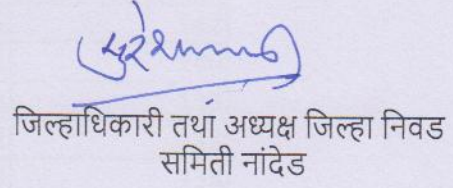 जिल्हाधिकारी तथा अध्यक्ष जिल्हा निवड
समिती नांदेड